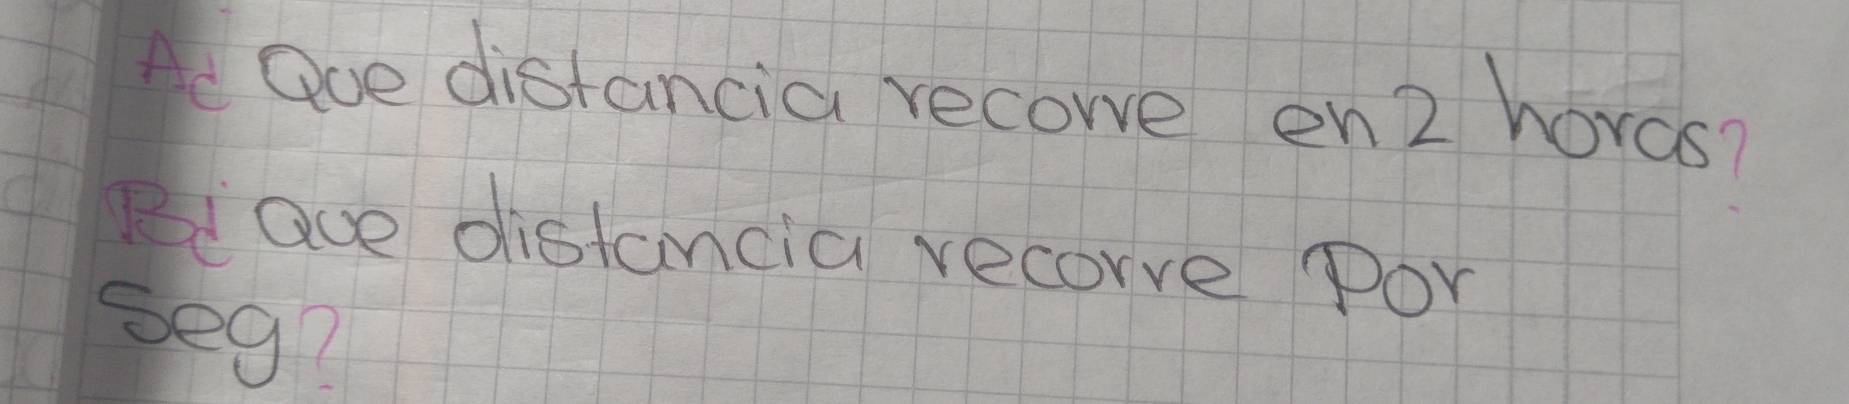 A¿ Que distancia recorre en 2 horas?
B¿ Que distancia recorre por
Seg?